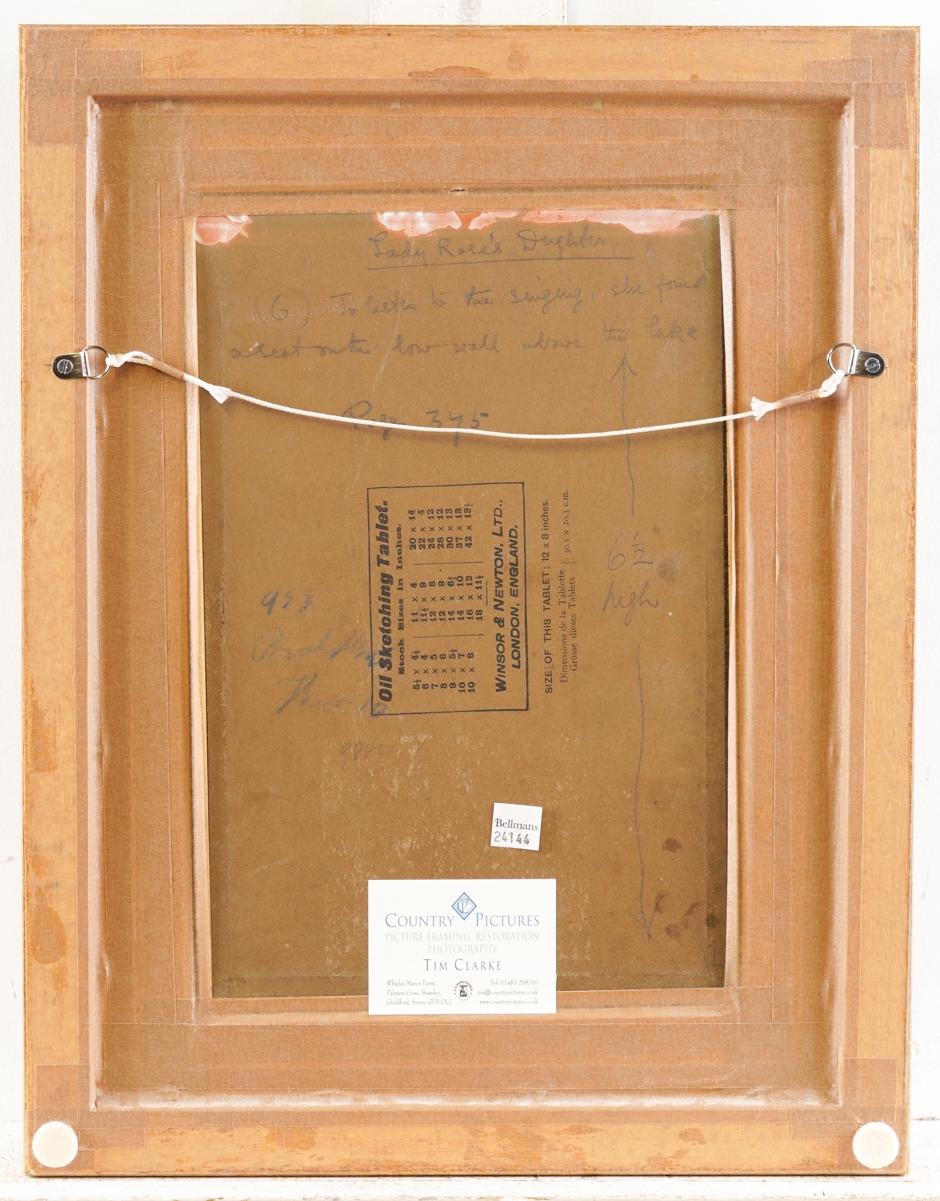 Lady Rose's Dughter
6 To listen to the singing, she found
a seat on the low wall above the lake
Page 345
6½"
high
Oil Sketching Tablet.
Stock Sizes in Inches.
5½ x 4½ 11 x 4 20 x 14
6 x 4 11½ x 9 22 x 4
7 x 5 12 x 8 24 x 12
8 x 6 12 x 9 28 x 12
9 x 5½ 14 x 6½ 30 x 13
10 x 7 14 x 10 37 x 13
10 x 8 16 x 12 42 x 13½
18 x 11½
WINSOR & NEWTON, LTD.,
LONDON, ENGLAND.
SIZE OF THIS TABLET; 12 x 8 inches.
Dimensions de la Tablette 30.5 x 20.3 c.m.
Grosse dieses Tablets
983
Bellmans
24144
COUNTRY PICTURES
PICTURE FRAMING, RESTORATION
PHOTOGRAPHY
TIM CLARKE
Whipley Manor Farm,
Palmers Cross, Bramley,
Guildford, Surrey GU5 0LL
Tel: 01483 268310
tim@countrypictures.co.uk
www.countrypictures.co.uk